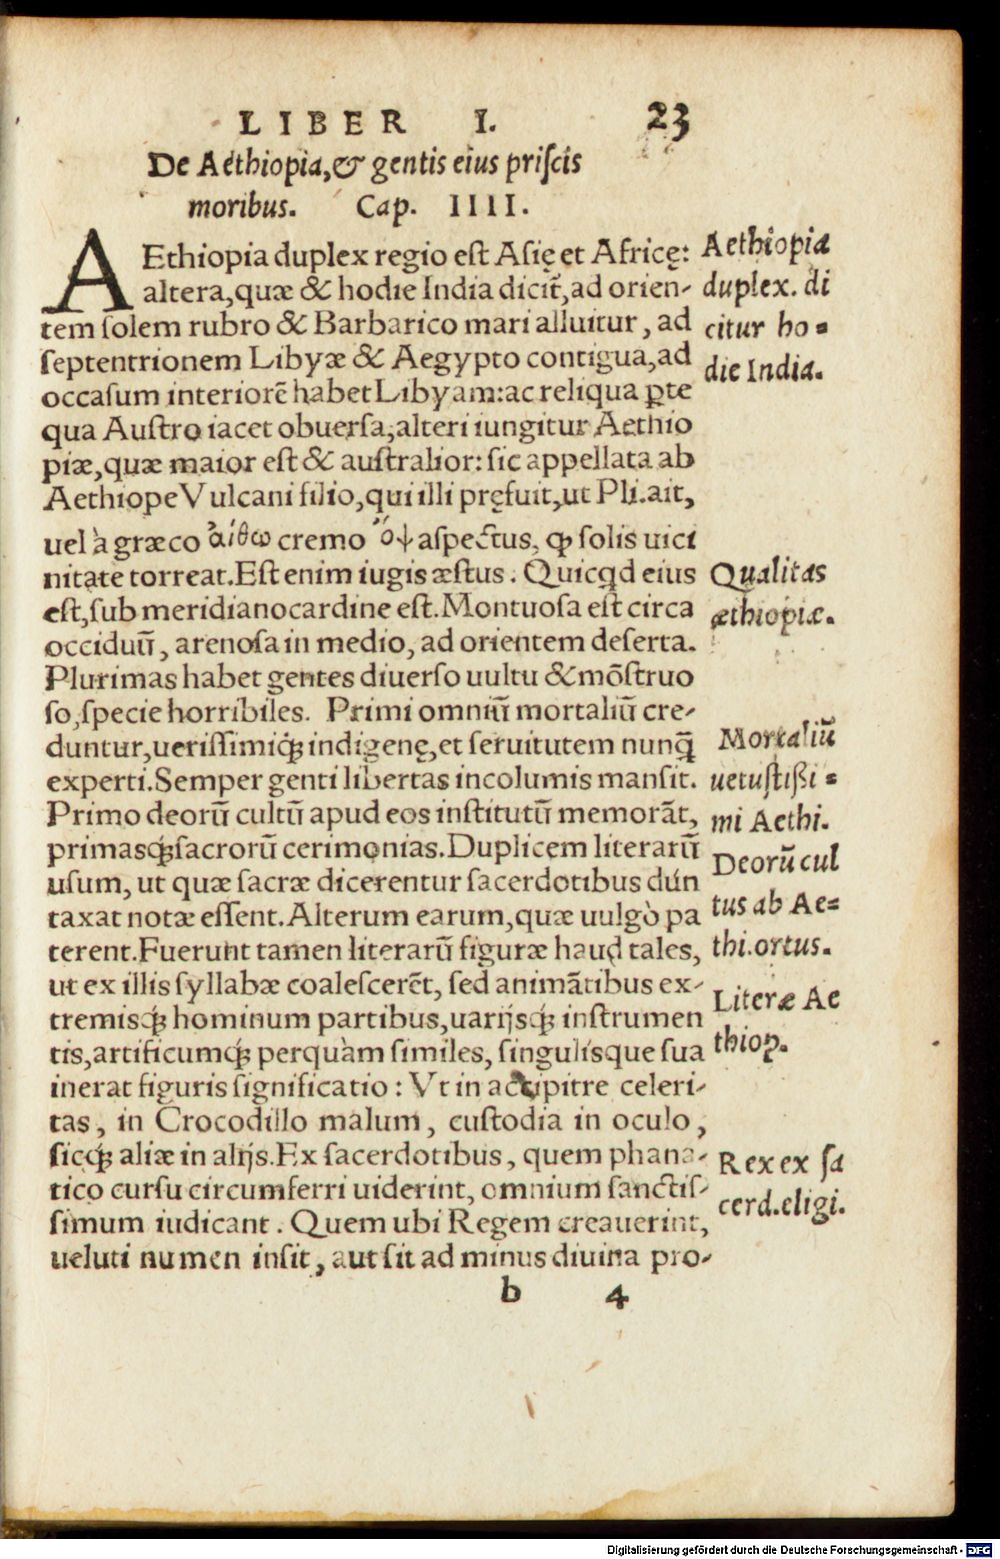 LIBER I. 23
De Aethiopia, & gentis eius priſcis
moribus. Cap. IIII.
AEthiopia duplex regio eſt Aſię et Africę:
altera, quæ & hodie India dicit᷑, ad orien-
tem ſolem rubro & Barbarico mari alluitur, ad
ſeptentrionem Libyæ & Aegypto contigua, ad
occaſum interiorē habet Libyam: ac reliqua ꝑte
qua Auſtro iacet obuerſa, alteri iungitur Aethio
piæ, quæ maior eſt & auſtralior: ſic appellata ab
Aethiope Vulcani filio, qui illi pręfuit, ut Pli. ait,
uel à græco αἴθω cremo ὄψ aſpectus, ꝙ ſolis uici
nitate torreat. Eſt enim iugis æſtus. Quicꝗd eius
eſt, ſub meridiano cardine eſt. Montuoſa eſt circa
occiduū, arenoſa in medio, ad orientem deſerta.
Plurimas habet gentes diuerſo uultu & mōſtruo
ſo, ſpecie horribiles. Primi omniū mortaliū cre-
duntur, ueriſſimiq́; indigenę, et ſeruitutem nunꝗ̄
experti. Semper genti libertas incolumis manſit.
Primo deorū cultū apud eos inſtitutū memorāt,
primasq́; ſacrorū cerimonias. Duplicem literarū
uſum, ut quæ ſacræ dicerentur ſacerdotibus dún
taxat notæ eſſent. Alterum earum, quæ uulgò pa
terent. Fuerunt tamen literarū figuræ haud tales,
ut ex illis ſyllabæ coaleſcerēt, ſed animātibus ex-
tremisq́; hominum partibus, uarijsq́; inſtrumen
tis, artificumq́; perquàm ſimiles, ſingulisque ſua
inerat figuris ſignificatio: Vt in accipitre celeri-
tas, in Crocodillo malum, cuſtodia in oculo,
ſicq́; aliæ in alijs. Ex ſacerdotibus, quem phana-
tico curſu circumferri uiderint, omnium ſanctiſ-
ſimum iudicant. Quem ubi Regem creauerint,
ueluti numen inſit, aut ſit ad minus diuina pro-
b 4
Aethiopia
duplex. di
citur ho=
die India.
Qualitas
æthiopiæ.
Mortaliū
uetuſtißi=
mi Aethi.
Deorū cul
tus ab Ae=
thi. ortus.
Literæ Ae
thioꝑ.
Rex ex ſa
cerd. eligi.
Digitalisierung gefördert durch die Deutsche Forschungsgemeinschaft - DFG